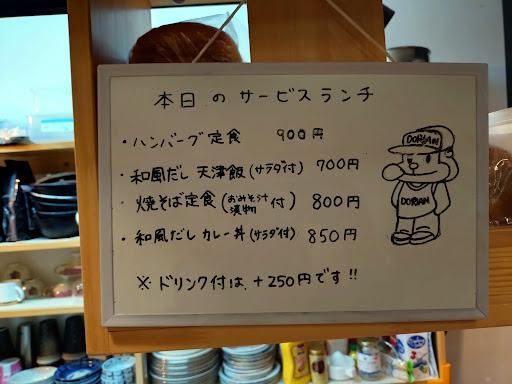 本日のサービスランチ
・ハンバーグ定食 900円
・和風だし 天津飯(サラダ付) 700円
・焼そば定食(おみそ汁 漬物 付) 800円
・和風だし カレー丼(サラダ付) 850円
※ドリンク付は、+250円です!!
DORIAN
DORIAN